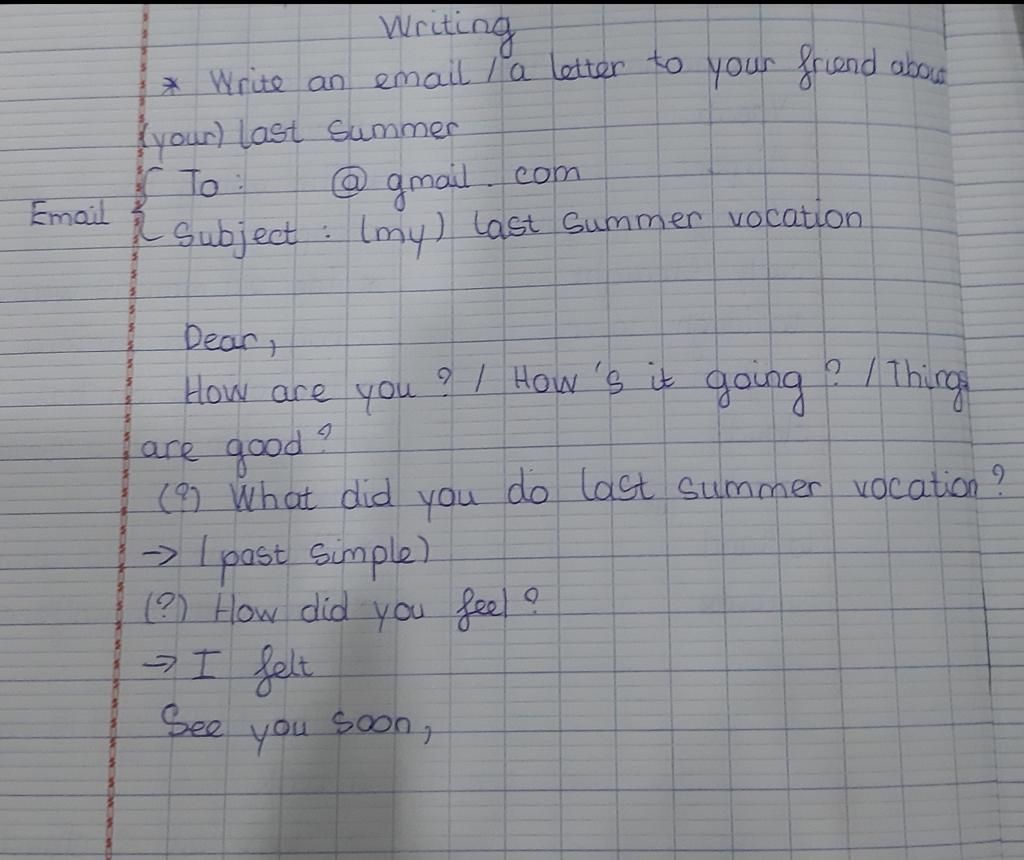 Writing
* Write an email / a letter to your friend about
(your) last summer
To: @ gmail. com
Email
Subject : (my) last summer vocation
Dear,
How are you ? / How 's it going ? / Things
are good ?
(?) What did you do last summer vocation ?
→ (past simple)
(?) How did you feel ?
→ I felt
See you soon,